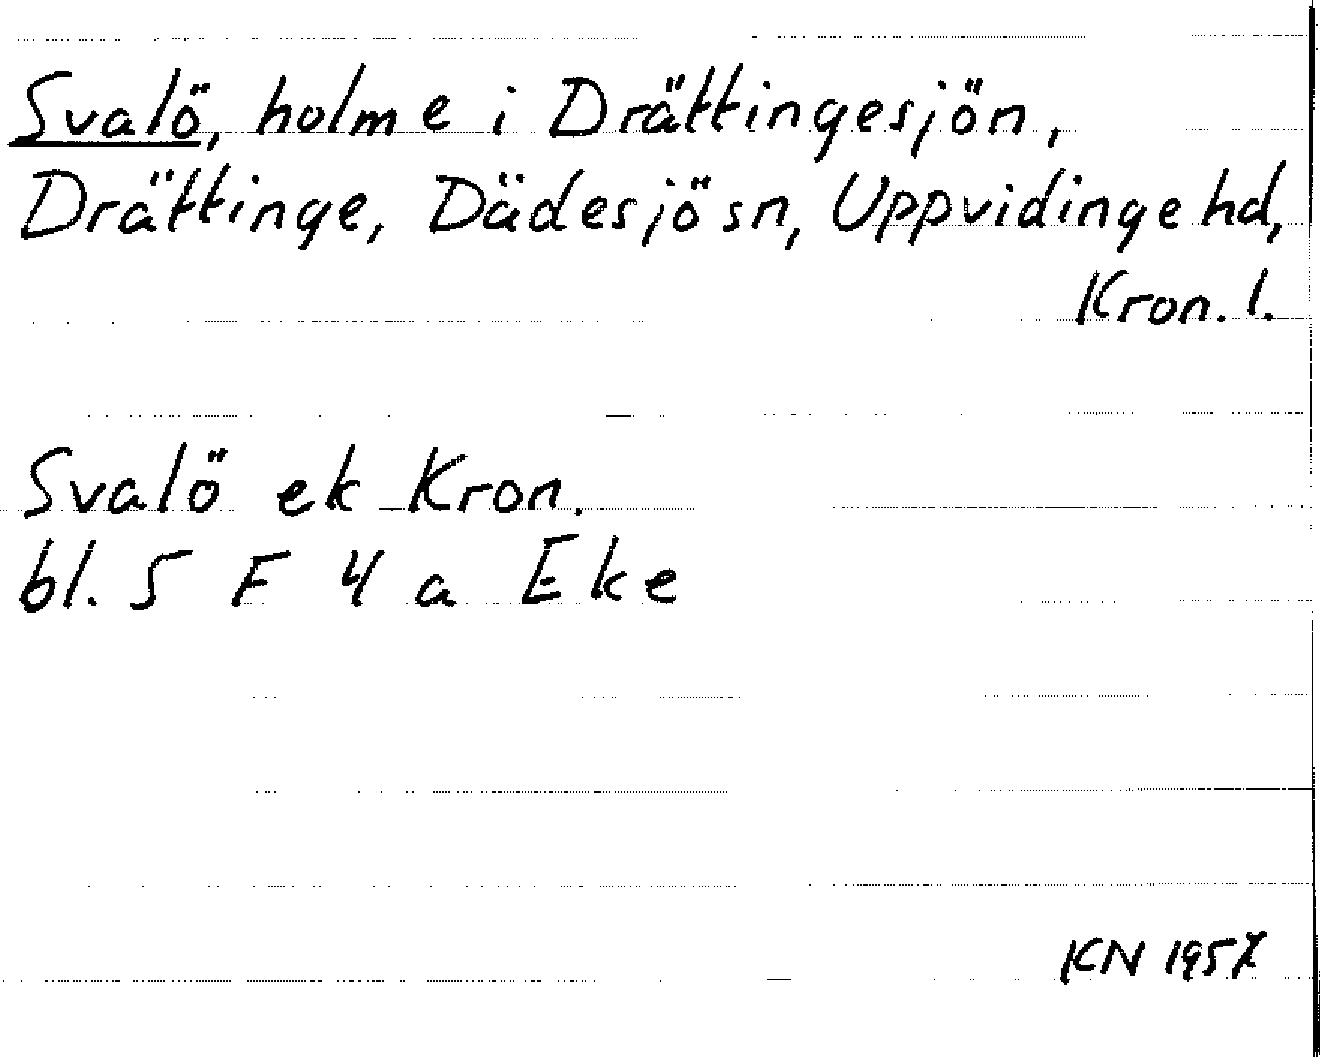 Svalö, holme i Drättingesjön,
Drättinge, Dädesjö sn, Uppvidinge hd,
Kron. l.
Svalö ek Kron.
bl. 5 F 4 a Eke
KN 1957